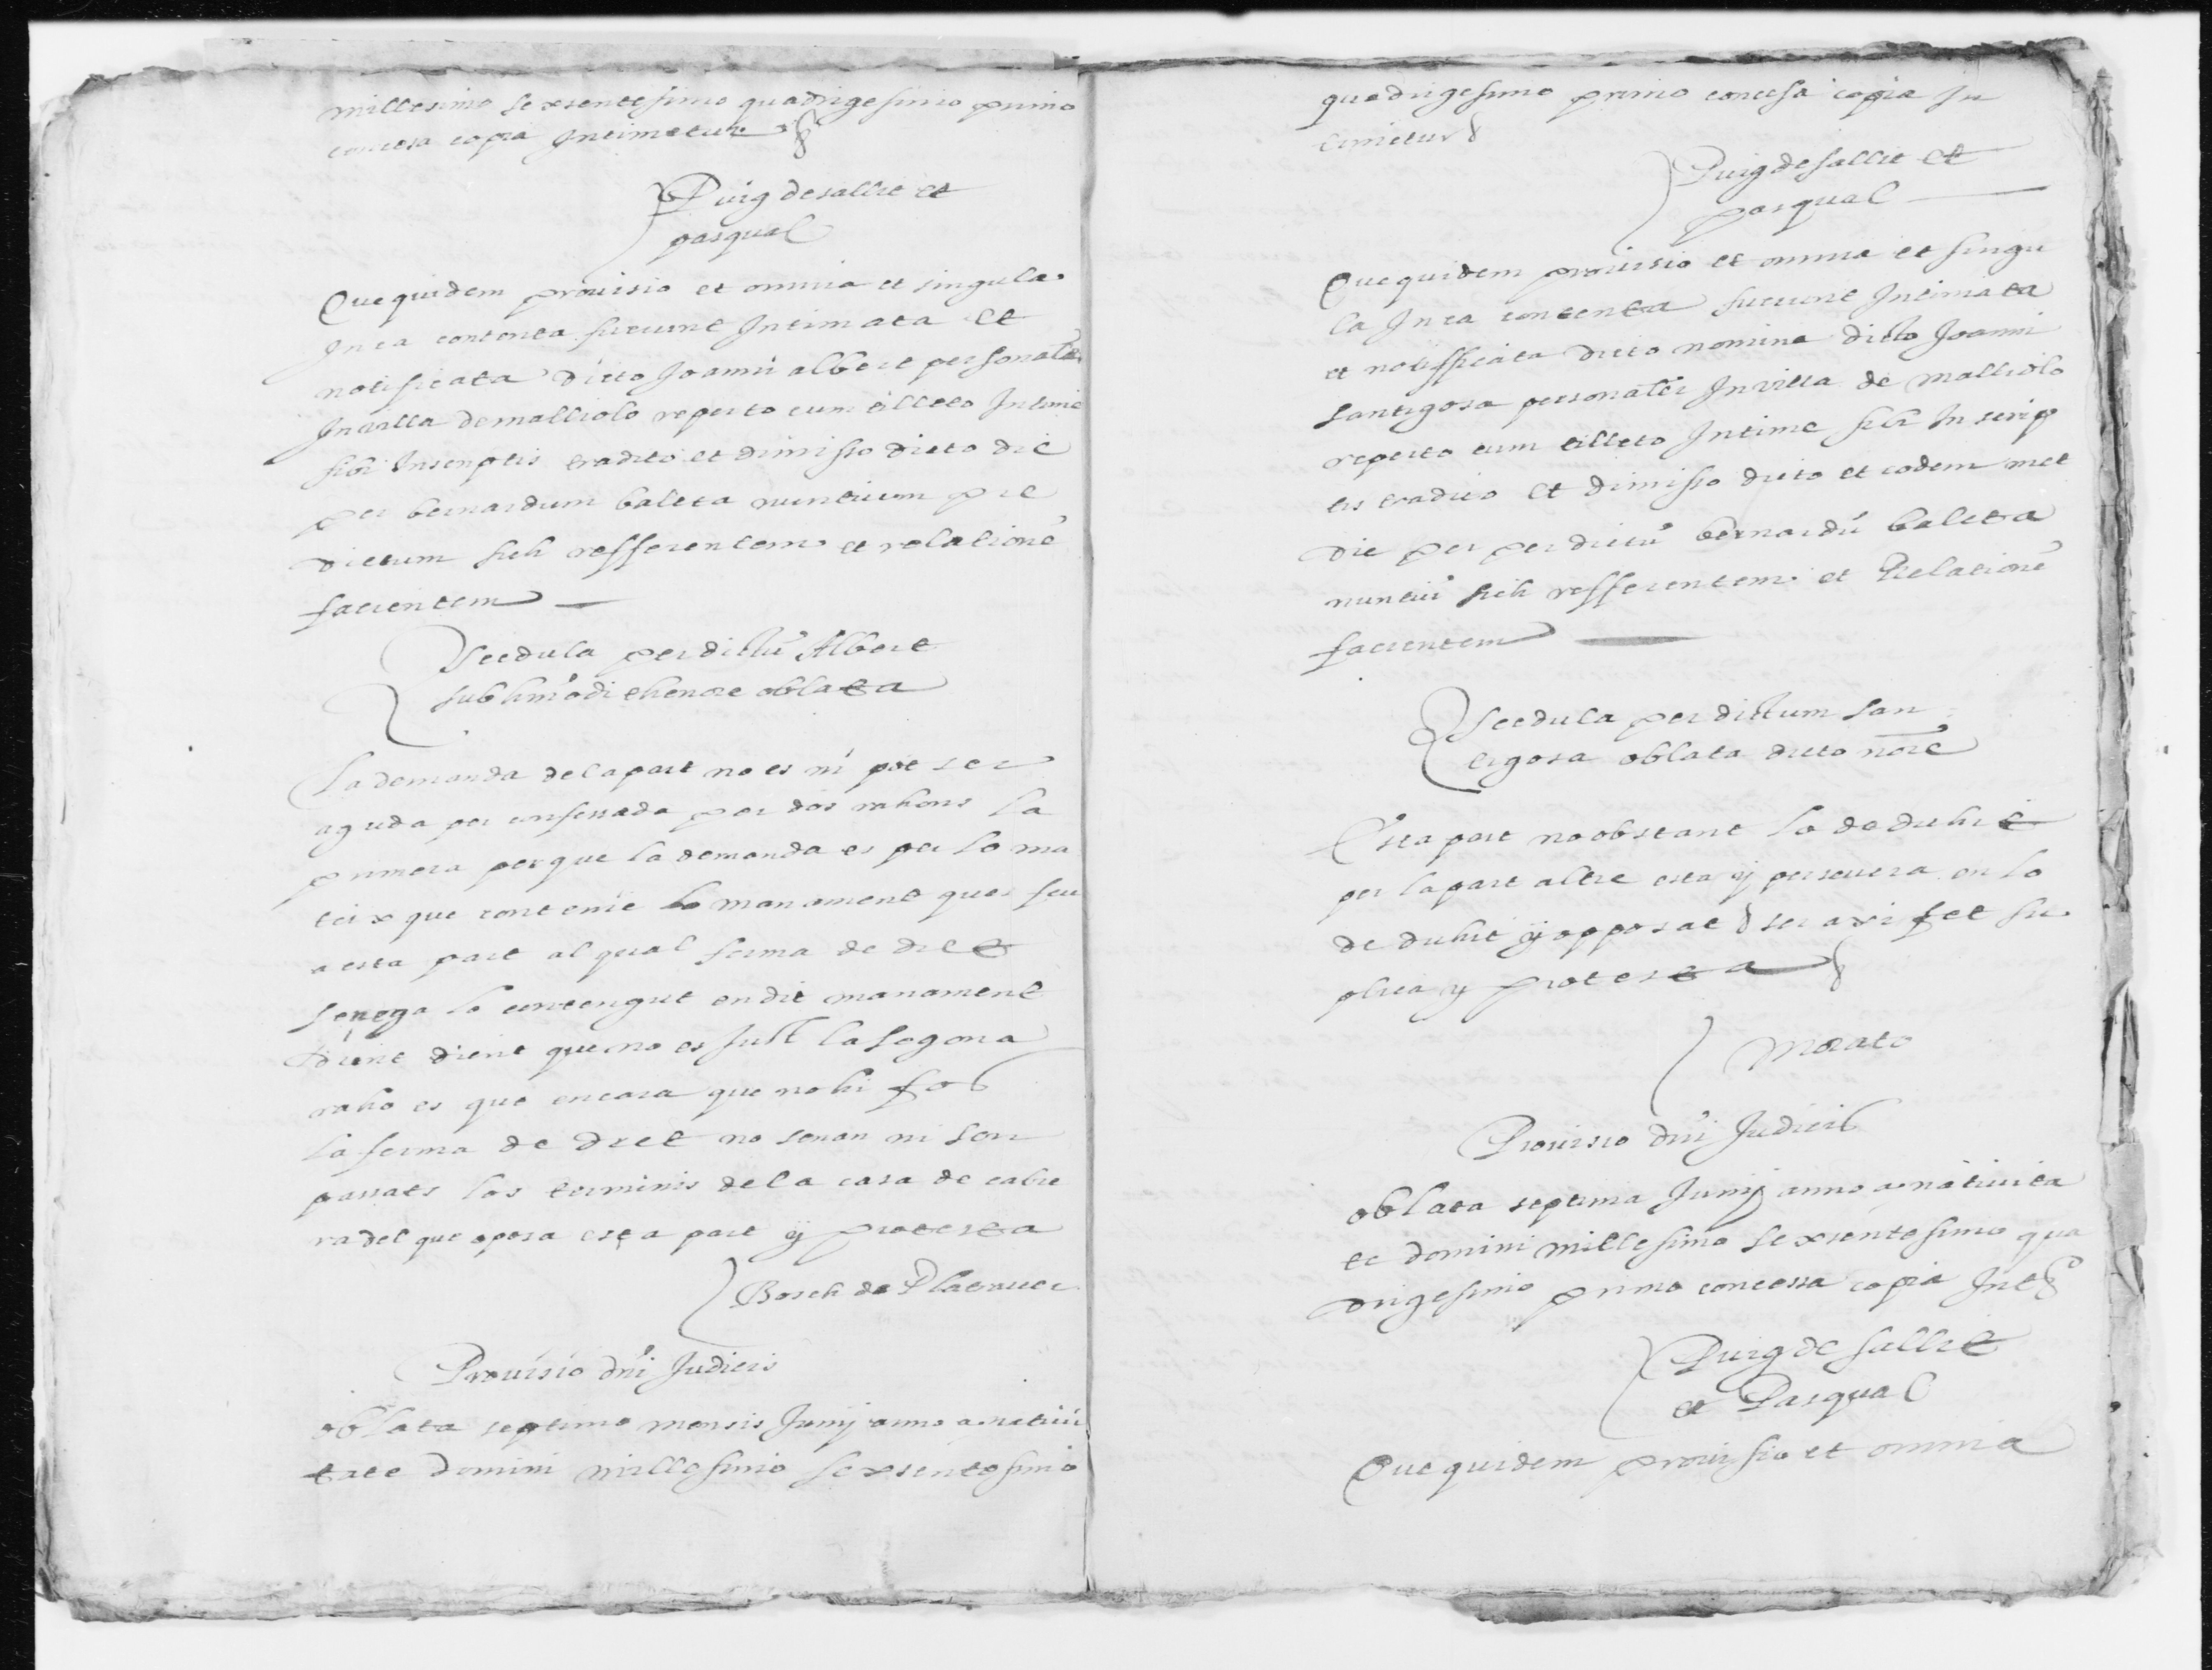 millesimo sexsentesimo quadrigesimo primo
concesa copia Intimetur
Puig de sallit et
pasqual
Que quidem provisio et omnia et singula
In ea contenta fuerunt Intimata et
notificata dicto Joanni albert personalr
In villa de malliolo reperto cum billeto Intime
sibi In scriptis tradito et dimisso dicto die
per bernardum baleta nuntium pre
dictum sich refferentem et relatione
facientem
Scedula per dictu Albert
sub hmodi thenore oblata
La demanda de la part no es ni pot ser
aguda per confessada per dos rahons la
primera perque la demanda es per lo ma
teix que contenie lo manament ques feu
a esta part al qual ferma de dret
se nega lo contengut en dit manament
dient dient que no es just la segona
raho es que encara que no hi fos
la ferma de dret no seran ni son
passats los terminis de la casa de cabre
ra del que oposa esta part y protesta
Bosch de Platraver
Provisio dni Judicis
oblata septimo mensis Junij anno a nativi
tate domini millesimo sexsentesimo
quadrigesimo primo concesa copia In
timetur
Puig de sallit et
pasqual
Que quidem provisio et omnia et singu
la In ea contenta fuerunt Intimata
et notifficata dicto nomine dicto Joanni
santigosa personalr In villa de malliolo
reperto cum billeto Intime sibi In scrip
tis tradito et dimisso dicto et eodem met
die per per dictu bernardu baleta
nuntiu sich refferentem et Relatione
facientem
Scedula per dictum san
tigosa oblata dicto noie
Esta part no obstant lo deduhit
per la part altre esta y persevera en lo
deduhit y opposat ser axi fet su
plica y protesta
Morato
Provisio dni Judicis
oblata septima Junij anno a nativita
te domini millesimo sexsentesimo qua
drigesimo primo concessa copia Int
Puig de sallit
et Pasqual
Que quidem provisio et omnia